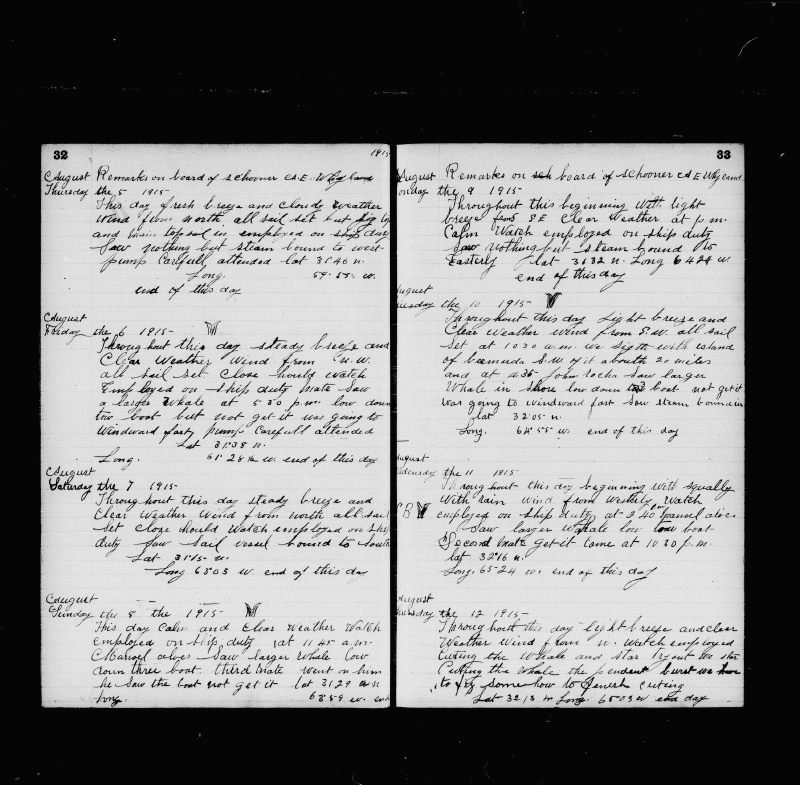 32
1915
August Remarks on board of schooner A.E. Whyland
Thursday the 5 1915
This day fresh breeze and cloudy weather
Wind from north all sail set but
and main topsail in employed on ship duty
Saw nothing but steam bound to west
pump Carefull attended lat 31°40 n.
Long. 59-55- w.
end of this day
August
Friday the 6 1915-
Throug hout this day steady breeze and
Clear Weather Wind from n. w.
all sail set Close should watch
Employed on ship duty mate saw
a larger Whale at 5 30 p.m. low down
two boat but not get it was going to
Windward fasty pump Carefull attended
Lat 31°38 n.
Long. 61°28 w. end of this day
August
Saturday the 7 1915
Throug hout this day steady breeze and
Clear Weather Wind from north all sail
set Close should Watch employed on ship
duty saw sail vessel bound to South
Lat 31°15- n.
Long 6203 w. end of this day
August
Sunday the 8 the 1915-
This day Calm and Clear Weather Watch
employed on ship duty at 11 45 a.m.
Manuel alves Saw larger Whale low
down three boat third mate went on him
he saw the boat not get it lat 31 29 n
Long. w. end
33
August Remarks on board of schooner A E Whyland
onday the 9 1915-
Throughout this beginning With light
breeze from S E Clear Weather at p m.
Calm Watch employed on ship duty
Saw nothing but steam bound to
Easterly lat 31°32 n. Long 64 24 w.
end of this day
ugust
uesday the 10 1915-
Throughout this day Light breeze and
Clear Weather Wind from S.W. all sail
set at 10 30 a.m. We sigth with island
of bermuda S.W of it abouth 20 miles
and at 4 35- John rocha saw larger
Whale in shore low down boat not get it
was going to windward fast Saw steam bound in
lat 32°05 n.
Long. 64°55 w. end of this day
ugust
ednesday the 11 1915
Throug hout this day beginning With squally
With rain wind from Westerly Watch
employed on ship duty at 3 40 pm manuel alves
Saw larger Whale low boat
Second mate get it come at 10 30 p.m.
lat 32°16 n.
Long. 65-24 w. end of this day
August
the 12 1915-
Throug houth this day Light breeze and clear
Weather Wind from n. Watch employed
Cutting the Whale and star tryout We star
Cutting the whale the pendent burst we have
to try some how to finish cuting
Lat 32 13 n Long. 65 03 w end day